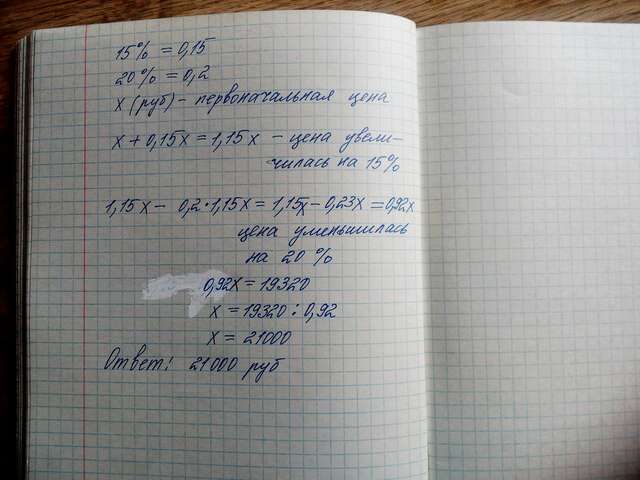 15% = 0,15
20% = 0,2
x (руб) - первоначальная цена
x + 0,15x = 1,15x - цена увели-
чилась на 15%
1,15x - 0,2·1,15x = 1,15x - 0,23x = 0,92x
цена уменьшилась
на 20 %
0,92x = 19320
x = 19320 : 0,92
x = 21000
Ответ: 21000 руб